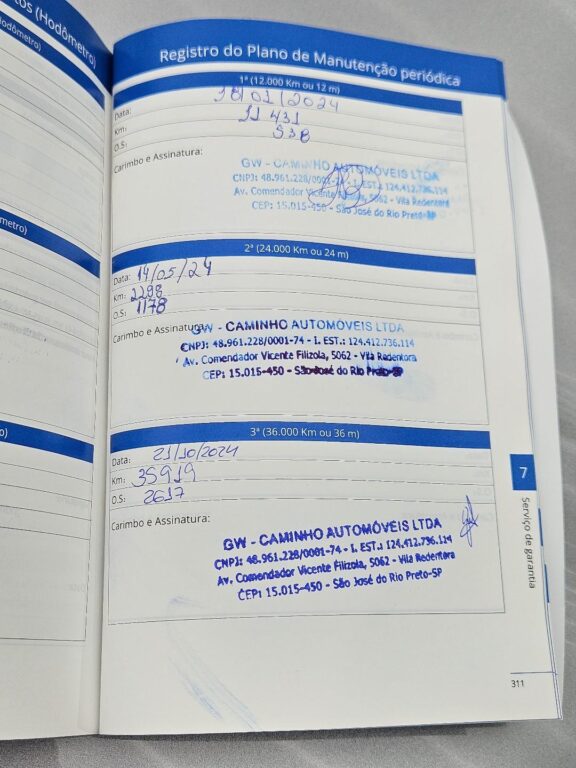 tos (Hodômetro)
Hodômetro)
Registro do Plano de Manutenção periódica
1ª (12.000 Km ou 12 m)
Data: 18/01/2024
Km: 11 431
O.S: 538
Carimbo e Assinatura:
GW - CAMINHO AUTOMÓVEIS LTDA
CNPJ: 48.961.228/0001-74 - I. EST.: 124.412.736.114
Av. Comendador Vicente Filizola, 5062 - Vila Redentora
CEP: 15.015-450 - São José do Rio Preto-SP
2ª (24.000 Km ou 24 m)
Data: 14/05/24
Km: 2298
O.S: 1178
Carimbo e Assinatura:
GW - CAMINHO AUTOMÓVEIS LTDA
CNPJ: 48.961.228/0001-74 - I. EST.: 124.412.736.114
Av. Comendador Vicente Filizola, 5062 - Vila Redentora
CEP: 15.015-450 - São José do Rio Preto-SP
3ª (36.000 Km ou 36 m)
Data: 21/10/2024
Km: 35919
O.S: 2617
Carimbo e Assinatura:
GW - CAMINHO AUTOMÓVEIS LTDA
CNPJ: 48.961.228/0001-74 - I. EST.: 124.412.736.114
Av. Comendador Vicente Filizola, 5062 - Vila Redentora
CEP: 15.015-450 - São José do Rio Preto-SP
ometro)
o)
7
Serviço de garantia
311